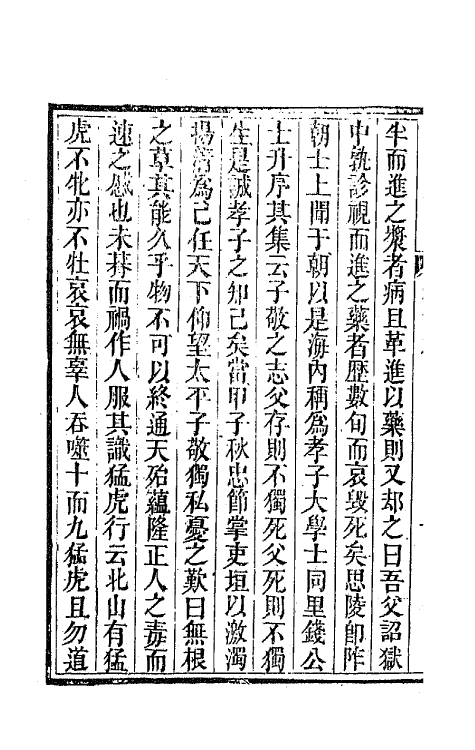 半而進之漿者病且革進以藥則又却之曰吾父詔獄
中孰診視而進之藥者歷數旬而哀毀死矣思陵卽阼
朝士上聞于朝以是海內稱爲孝子大學士同里錢公
士升序其集云子敬之志父存則不獨死父死則不獨
生是誠孝子之知己矣當甲子秋忠節掌吏垣以激濁
揚淸爲己任天下仰望太平子敬獨私憂之歎曰無根
之草其能久乎物不可以終通天殆蘊隆正人之毒而
速之愆也未朞而禍作人服其識猛虎行云北山有猛
虎不牝亦不牡哀哀無辜人吞噬十而九猛虎且勿道